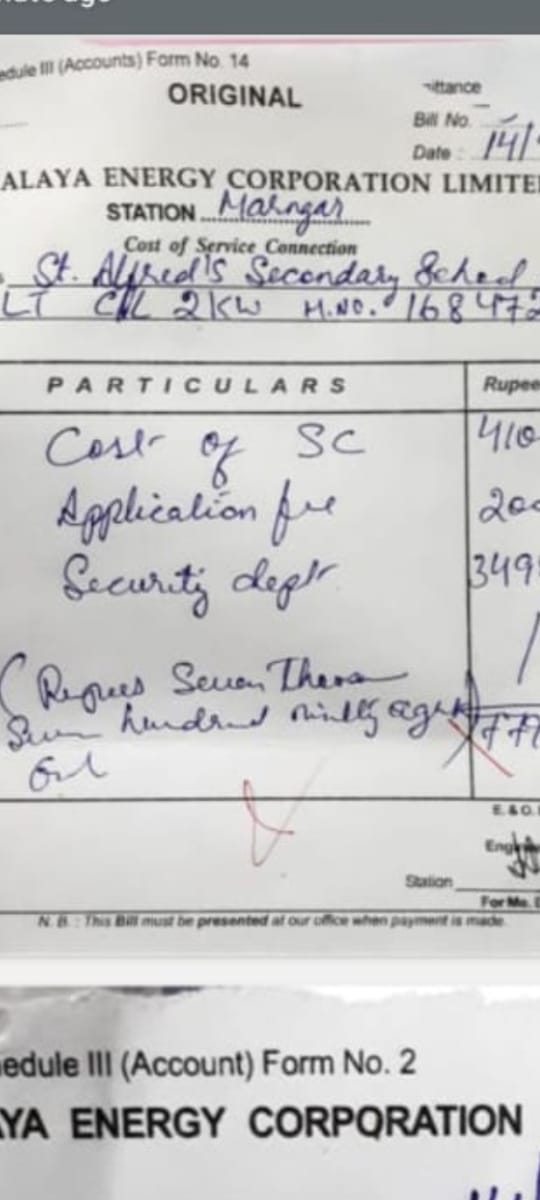 edule III (Accounts) Form No. 14
ORIGINAL
ittance
Bill No.
Date : 14/
ALAYA ENERGY CORPORATION LIMITE
STATION Marngar
Cost of Service Connection
St. Alfred's Secondary School
LT CL 2KW M.NO. 168472
PARTICULARS Rupee
Cost of SC 410
Application fee 200
Security dept 349
(Rupees Seven Thousa
Seven hundred ninety eight
Onl
E. & O.
Engi
Station
For Me. E
N. B. : This Bill must be presented at our office when payment is made.
edule III (Account) Form No. 2
YA ENERGY CORPORATION